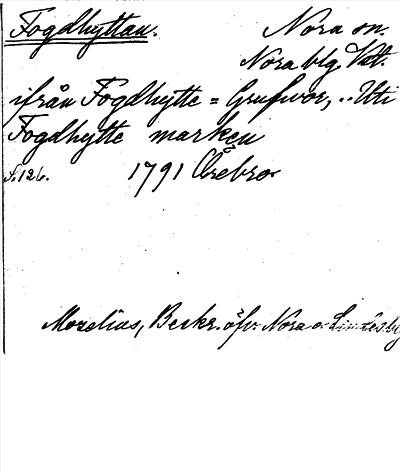 Fogdhyttan.
Nora sn.
Nora blg. Vst.
ifrån Fogdhytte = Grufwor, .. Uti
Fogdhytte marken
S. 126.
1791 Örebro
Morelius, Beskr. öfv. Nora o. Lindesbg